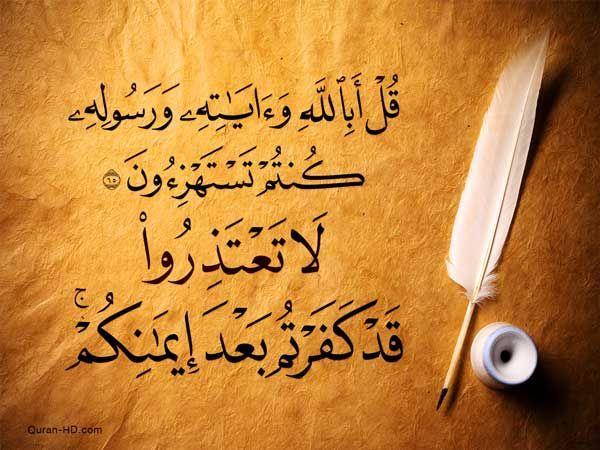 قُلْ أَبِٱللَّهِ وَءَايَـٰتِهِۦ وَرَسُولِهِۦ
كُنتُمْ تَسْتَهْزِءُونَ ۝٦٥
لَا تَعْتَذِرُوا۟
قَدْ كَفَرْتُم بَعْدَ إِيمَـٰنِكُمْ ۚ
Quran-HD.com